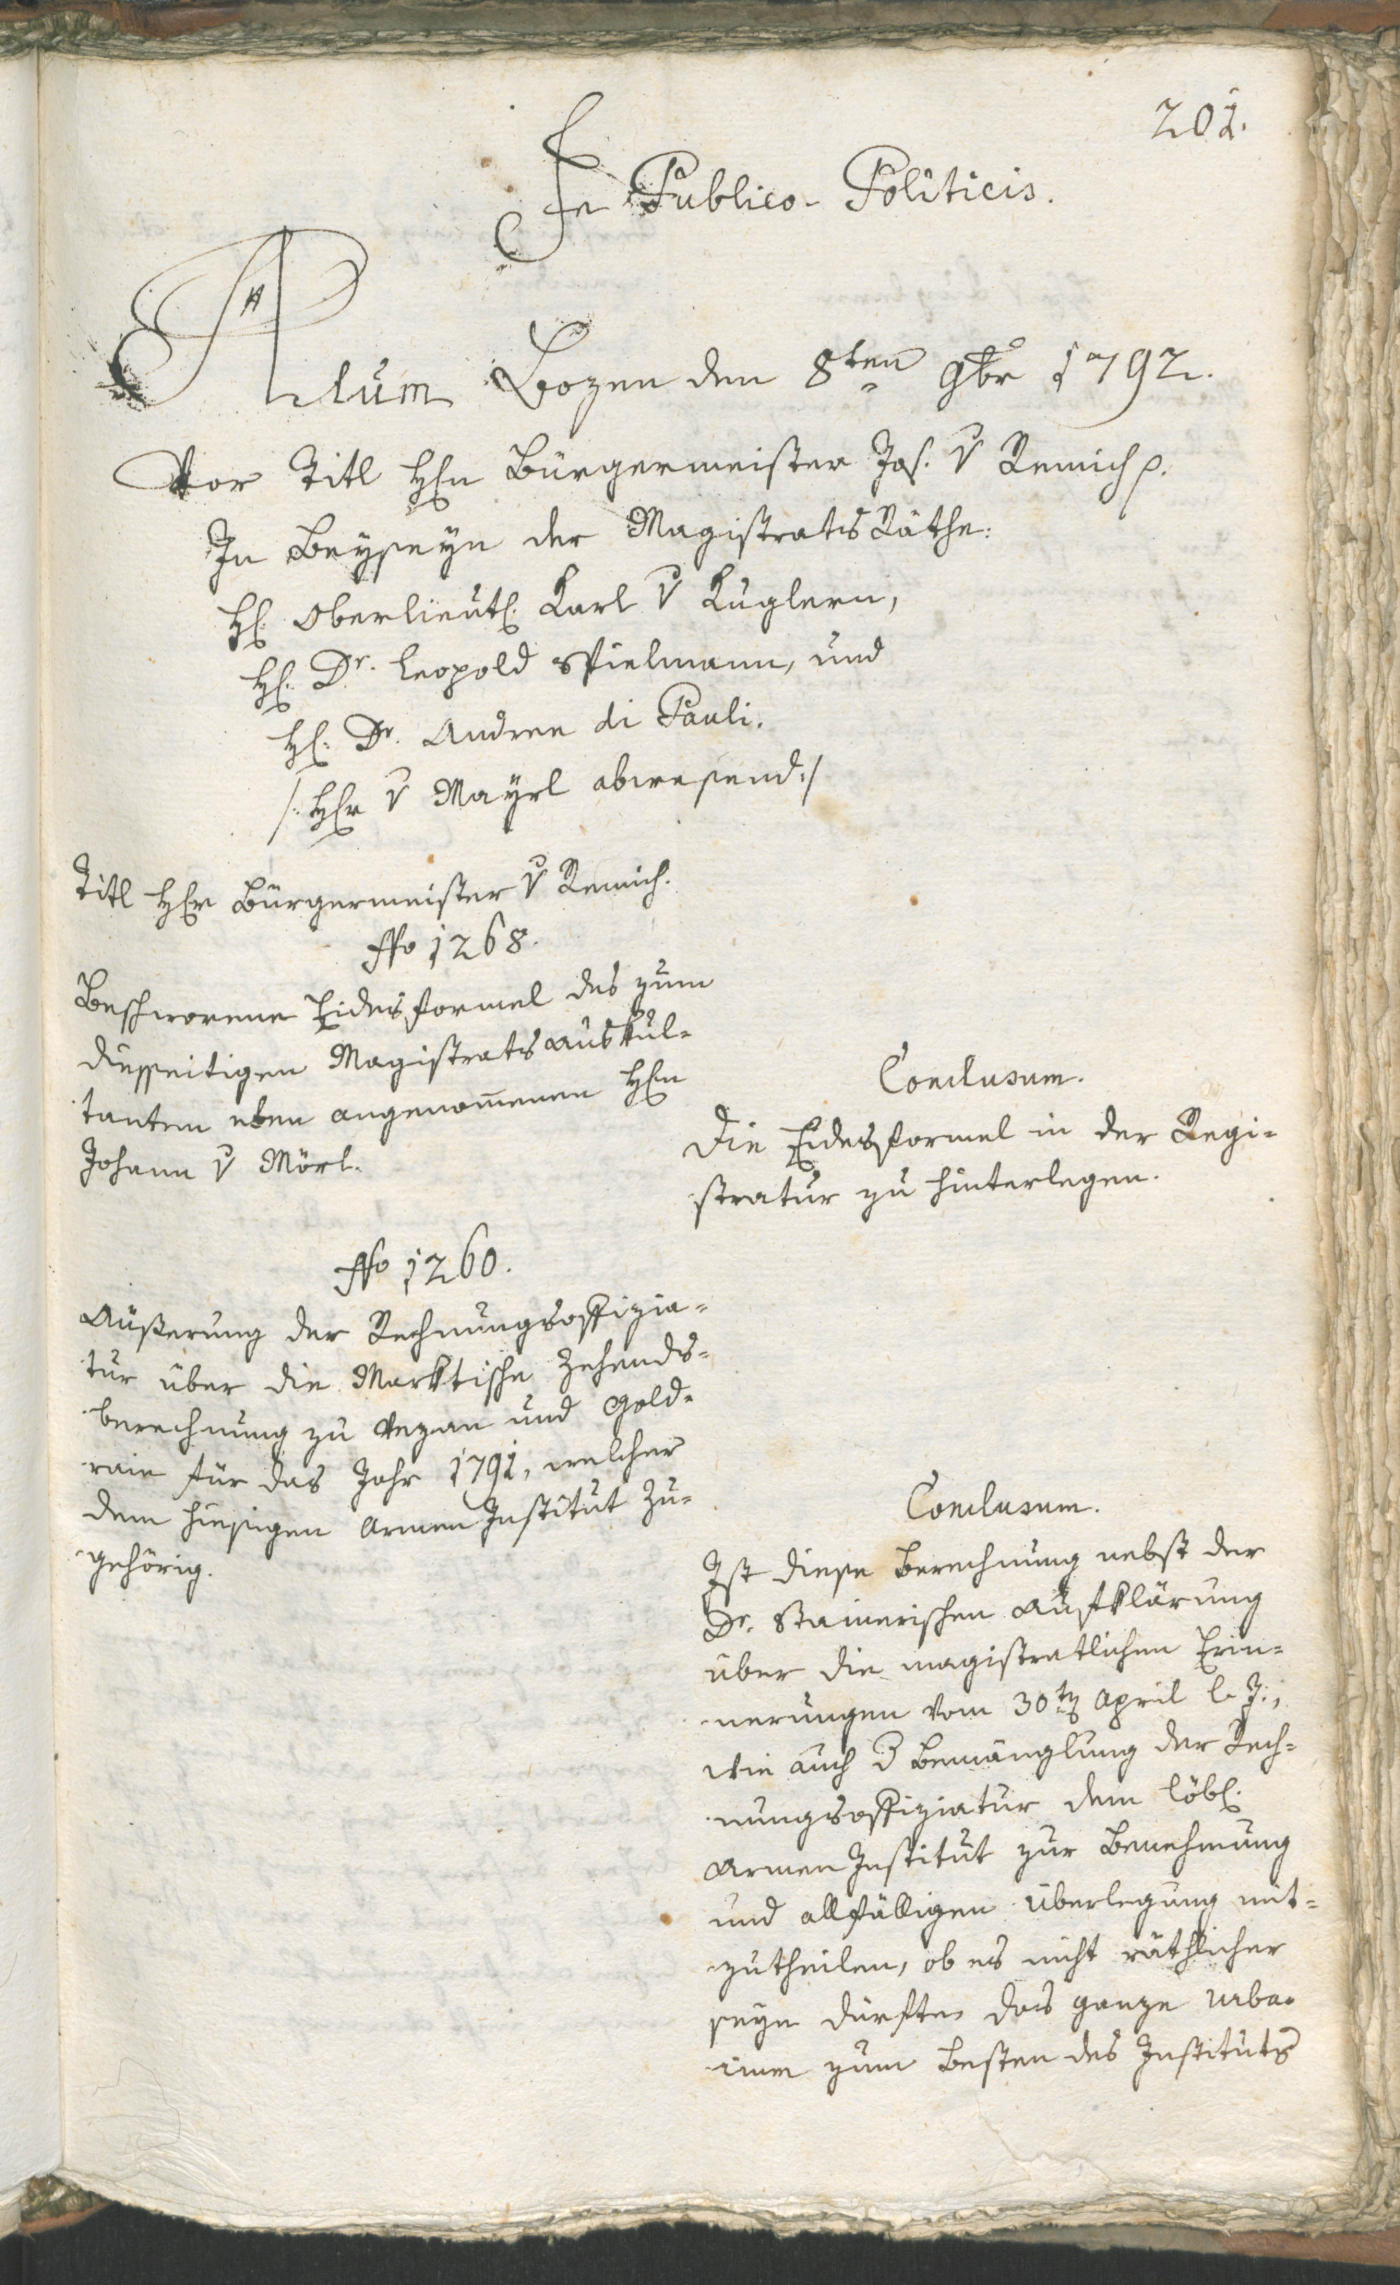 201.
In Publico-Politicis.
Actum Bozen den 8ten 9br 1792.
Vor Titl Hhn Bürgermeister Jos. v Remich p.
In Beyseyn der Magistrats Räthe:
H. Oberlieut. Karl v Kuglern,
H. Dr. Leopold Spielmann, und
H. Dr. Andree di Pauli.
/: Hr v Mayrl abwesend :/
Titl Hr Bürgermeister v Remich.
No 1268.
Beschworene Eidesformel des zum
diesseitigen Magistratsauskul-
tanten eben angenommenen Hhn
Johann v Mörl.
Conclusum.
Die Eidesformel in der Regi-
stratur zu hinterlegen.
No 1260.
Äußerung der Rechnungsoffizia-
tur über die Marktische Zehends-
berechnung zu Vezan und Gold-
rain für das Jahr 1791, welcher
dem hiesigen Armen Institut zu-
gehörig.
Conclusum.
Ist diese Berechnung nebst der
Dr. Stainerischen Aufklärung
über die magistratlichen Erin-
nerungen vom 30ten April l. J.,
wie auch d Bemänglung der Rech-
nungsoffiziatur dem löbl.
Armen Institut zur Benehmung
und allfälligen Überlegung mit-
zutheilen, ob es nicht räthlicher
seyn dürfte das ganze Urba-
rium zum Besten des Instituts